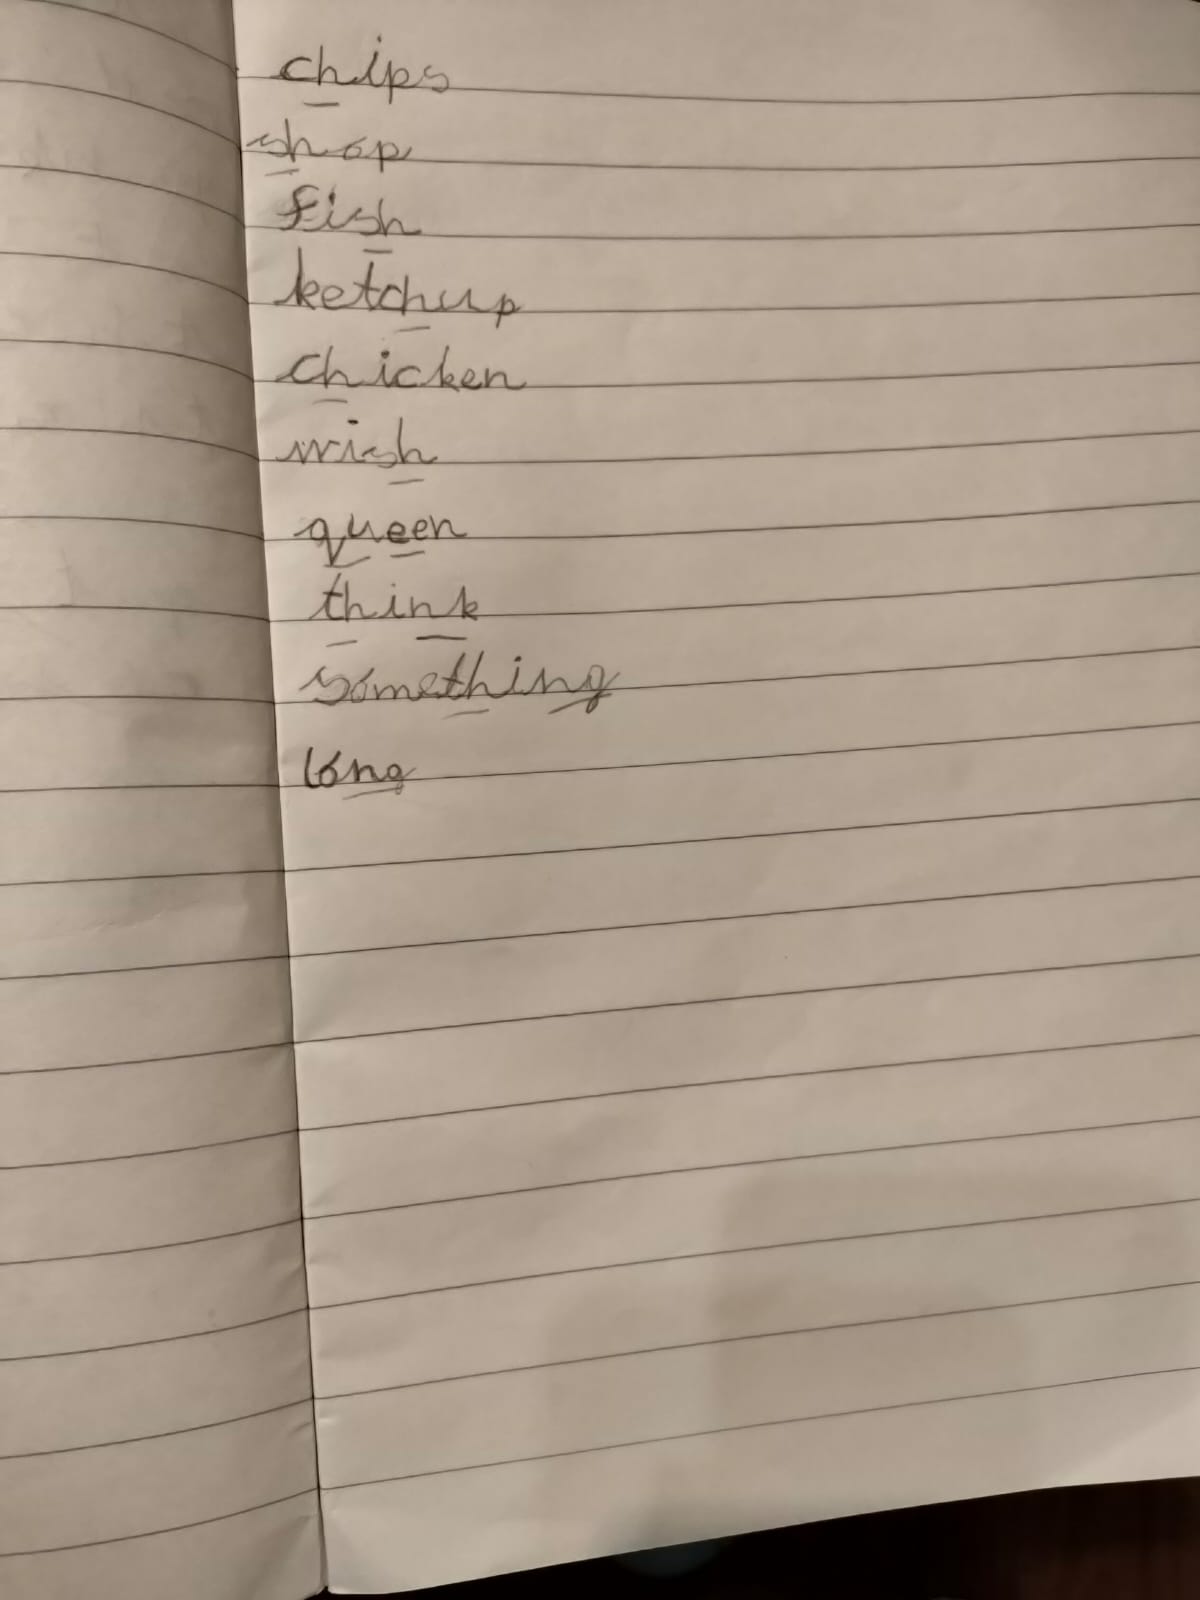 chips
shop
fish
ketchup
chicken
wish
queen
think
something
long